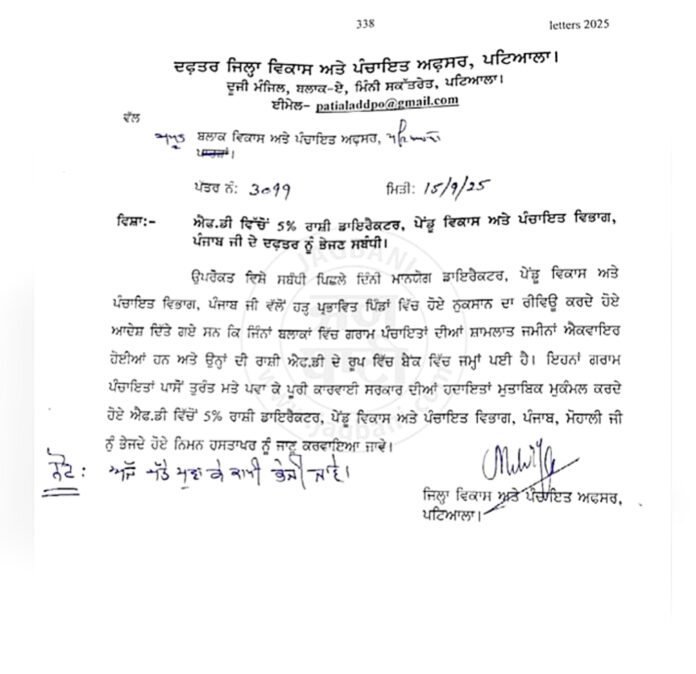 338
letters 2025
ਦਫ਼ਤਰ ਜਿਲ੍ਹਾ ਵਿਕਾਸ ਅਤੇ ਪੰਚਾਇਤ ਅਫ਼ਸਰ, ਪਟਿਆਲਾ।
ਦੂਜੀ ਮੰਜਿਲ, ਬਲਾਕ-ਏ, ਮਿੰਨੀ ਸਕੱਤਰੇਤ, ਪਟਿਆਲਾ।
ਈਮੇਲ- patialaddpo@gmail.com
ਵੱਲ
ਬਲਾਕ ਵਿਕਾਸ ਅਤੇ ਪੰਚਾਇਤ ਅਫ਼ਸਰ,
ਪੱਤਰ ਨੰ: 3099 ਮਿਤੀ: 15/9/25
ਵਿਸ਼ਾ:- ਐਫ.ਡੀ ਵਿੱਚੋਂ 5% ਰਾਸ਼ੀ ਡਾਇਰੈਕਟਰ, ਪੇਂਡੂ ਵਿਕਾਸ ਅਤੇ ਪੰਚਾਇਤ ਵਿਭਾਗ,
ਪੰਜਾਬ ਜੀ ਦੇ ਦਫਤਰ ਨੂੰ ਭੇਜਣ ਸਬੰਧੀ।
ਉਪਰੋਕਤ ਵਿਸ਼ੇ ਸਬੰਧੀ ਪਿਛਲੇ ਦਿੰਨੀ ਮਾਨਯੋਗ ਡਾਇਰੈਕਟਰ, ਪੇਂਡੂ ਵਿਕਾਸ ਅਤੇ
ਪੰਚਾਇਤ ਵਿਭਾਗ, ਪੰਜਾਬ ਜੀ ਵੱਲੋਂ ਹੜ੍ਹ ਪ੍ਰਭਾਵਿਤ ਪਿੰਡਾਂ ਵਿੱਚ ਹੋਏ ਨੁਕਸਾਨ ਦਾ ਰੀਵਿਊ ਕਰਦੇ ਹੋਏ
ਆਦੇਸ਼ ਦਿੱਤੇ ਗਏ ਸਨ ਕਿ ਜਿੰਨਾਂ ਬਲਾਕਾਂ ਵਿੱਚ ਗਰਾਮ ਪੰਚਾਇਤਾਂ ਦੀਆਂ ਸ਼ਾਮਲਾਤ ਜਮੀਨਾਂ ਐਕਵਾਇਰ
ਹੋਈਆਂ ਹਨ ਅਤੇ ਉਨ੍ਹਾਂ ਦੀ ਰਾਸ਼ੀ ਐਫ.ਡੀ ਦੇ ਰੂਪ ਵਿੱਚ ਬੈਂਕ ਵਿੱਚ ਜਮ੍ਹਾਂ ਪਈ ਹੈ। ਇਹਨਾਂ ਗਰਾਮ
ਪੰਚਾਇਤਾਂ ਪਾਸੋਂ ਤੁਰੰਤ ਮਤੇ ਪਵਾ ਕੇ ਪੂਰੀ ਕਾਰਵਾਈ ਸਰਕਾਰ ਦੀਆਂ ਹਦਾਇਤਾਂ ਮੁਤਾਬਿਕ ਮੁਕੰਮਲ ਕਰਦੇ
ਹੋਏ ਐਫ.ਡੀ ਵਿੱਚੋਂ 5% ਰਾਸ਼ੀ ਡਾਇਰੈਕਟਰ, ਪੇਂਡੂ ਵਿਕਾਸ ਅਤੇ ਪੰਚਾਇਤ ਵਿਭਾਗ, ਪੰਜਾਬ, ਮੋਹਾਲੀ ਜੀ
ਨੂੰ ਭੇਜਦੇ ਹੋਏ ਨਿਮਨ ਹਸਤਾਖਰ ਨੂੰ ਜਾਣੂ ਕਰਵਾਇਆ ਜਾਵੇ।
ਨੋਟ: ਅੱਜ ਮਤੇ ਪਵਾ ਕੇ ਕਾਪੀ ਭੇਜੀ ਜਾਵੇ।
ਜਿਲ੍ਹਾ ਵਿਕਾਸ ਅਤੇ ਪੰਚਾਇਤ ਅਫਸਰ,
ਪਟਿਆਲਾ।